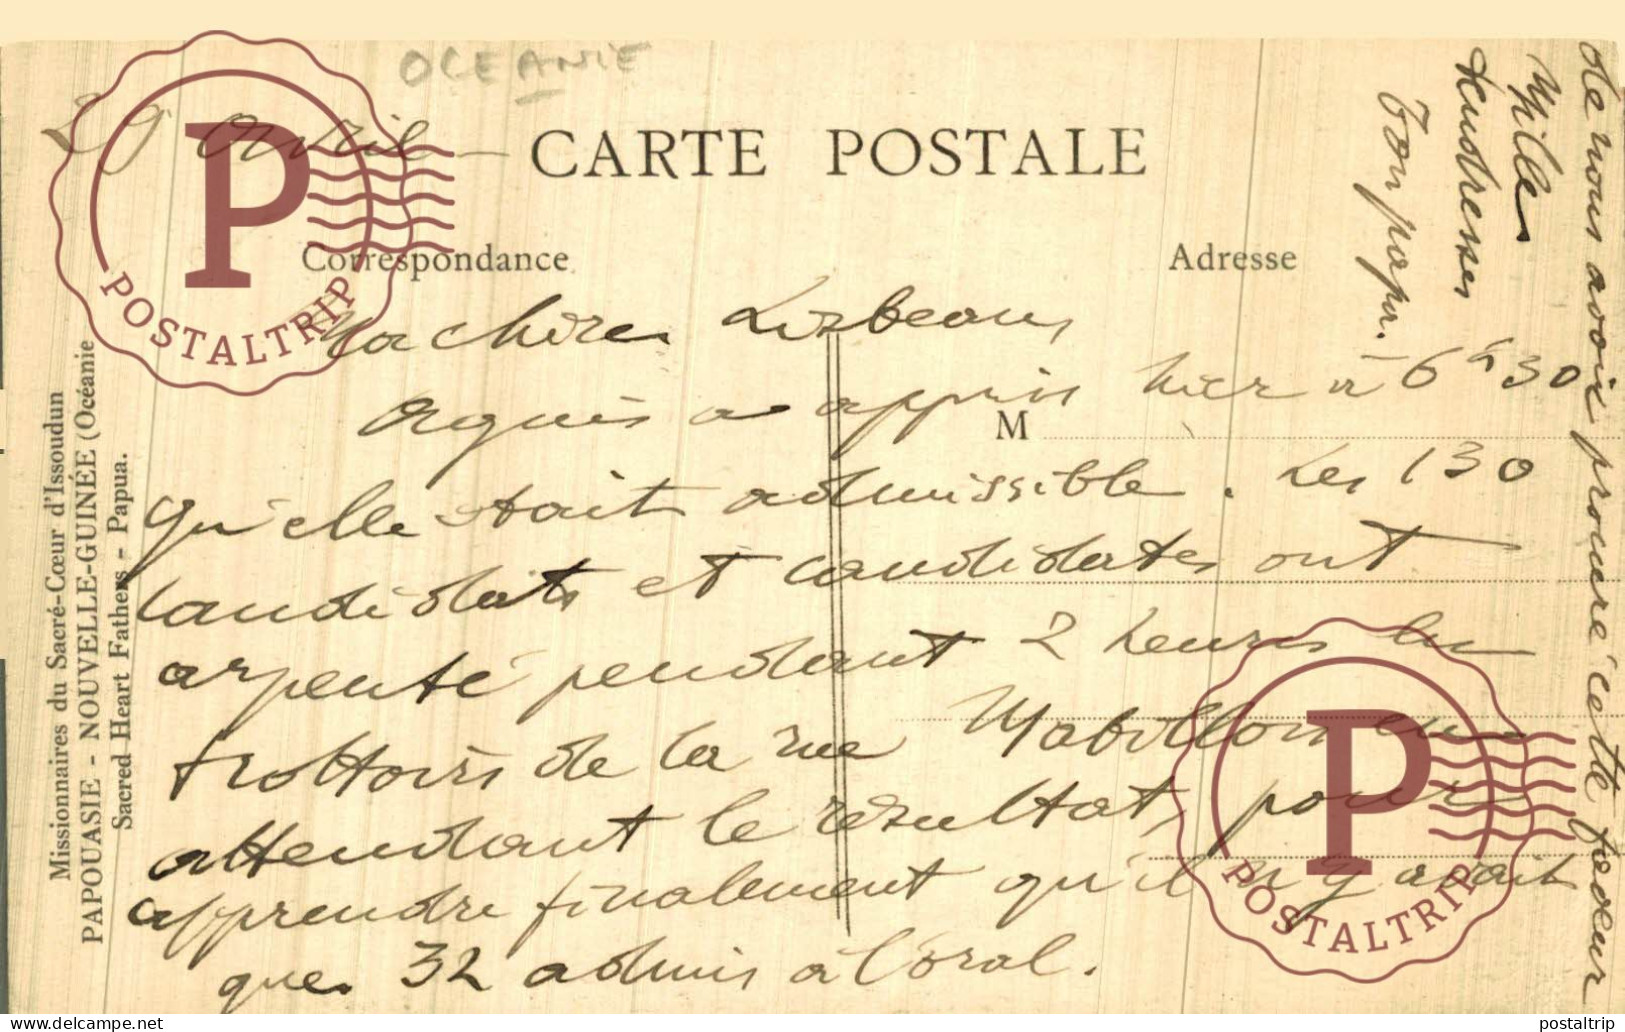 OCEANIE
29 Avril
CARTE POSTALE
Correspondance
Adresse
M
Ma chère
Agnès a appris hier à 6h30
qu'elle était admissible. Les 130
candidats et candidates ont
arpenté pendant 2 heures les
trottoirs de la rue Mabillon en
attendant le résultat, pour
apprendre finalement qu'il n'y avait
que 32 admis à l'oral.
de nous avoir procuré cette faveur
Mille
tendresses
Ton papa.
Missionnaires du Sacré-Cœur d'Issoudun
PAPOUASIE - NOUVELLE-GUINÉE (Océanie
Sacred Heart Fathers - Papua.
P
POSTALTRIP
P
POSTALTRIP
www.delcampe.net
postaltrip